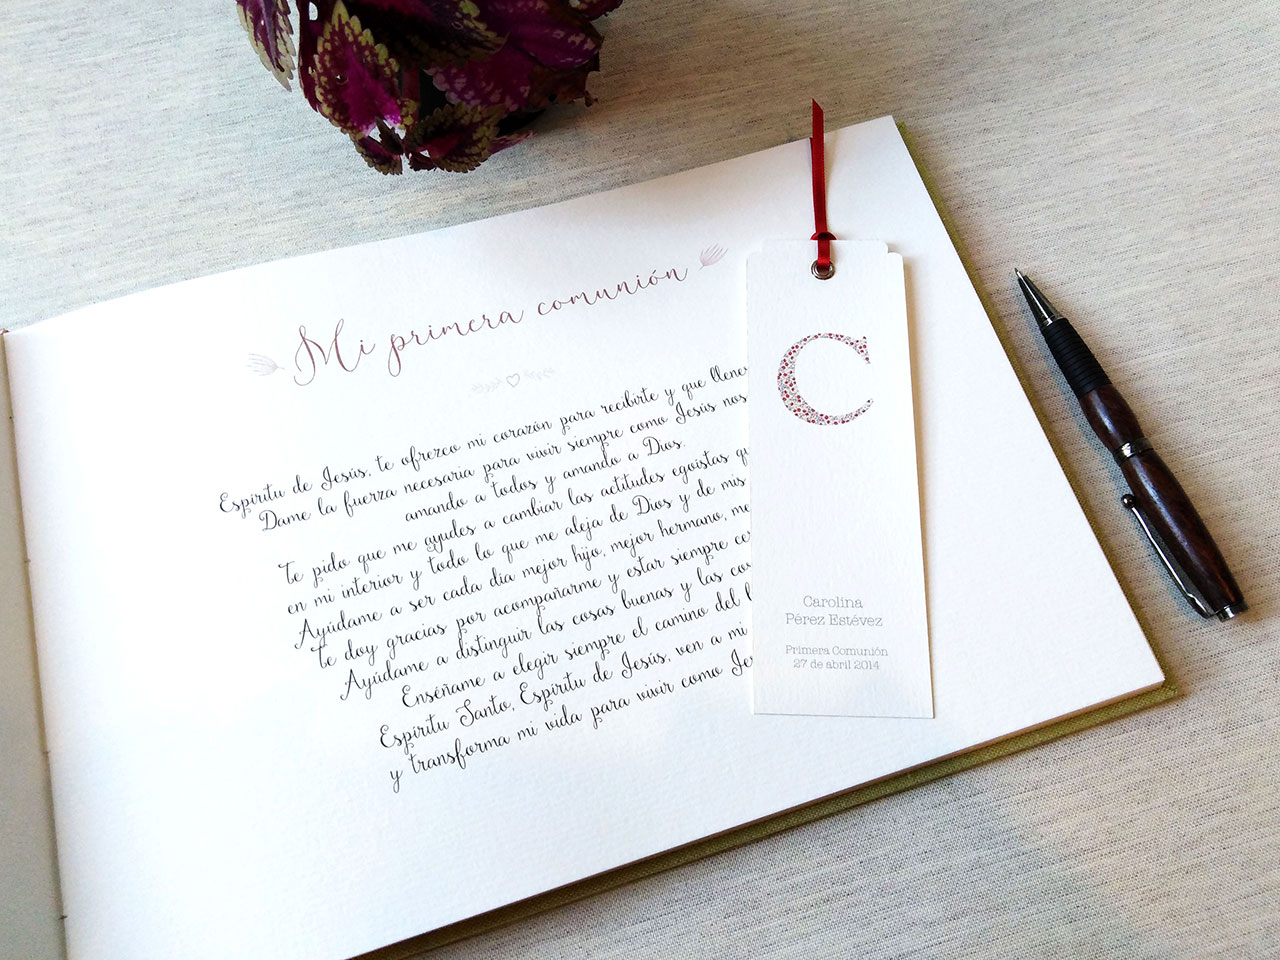 Mi primera comunión
Espíritu de Jesús, te ofrezco mi corazón para recibirte y que llenes
Dame la fuerza necesaria para vivir siempre como Jesús nos
amando a todos y amando a Dios.
Te pido que me ayudes a cambiar las actitudes egoístas
en mi interior y todo lo que me aleja de Dios y de mis
Ayúdame a ser cada día mejor hijo, mejor hermano,
Te doy gracias por acompañarme y estar siempre
Ayúdame a distinguir las cosas buenas y las
Enséñame a elegir siempre el camino del
Espíritu Santo, Espíritu de Jesús, ven a mi
y transforma mi vida para vivir como
C
Carolina
Pérez Estévez
Primera Comunión
27 de abril 2014